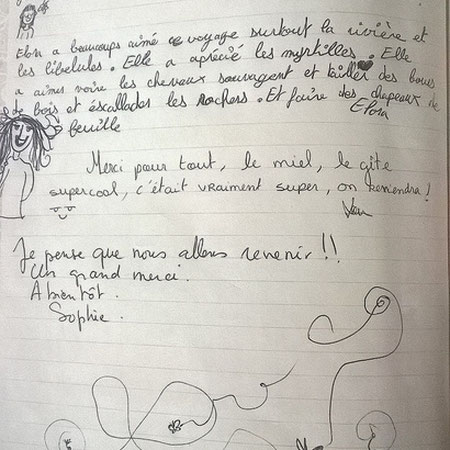 Elora a beaucoups aimé ce voyage surtout la rivière et
les libelules. Elle a aprécié les myrtilles. Elle
a aimer voire les chevaux sauvagent et tailler des bous
de bois et éscallader les rochers. Et faire des chapeaux de
feuille Elora
Merci pour tout, le miel, le gîte
supercool, c'était vraiment super, on reviendra!
Je pense que nous allons revenir!!
Un grand merci.
A bientôt.
Sophie.